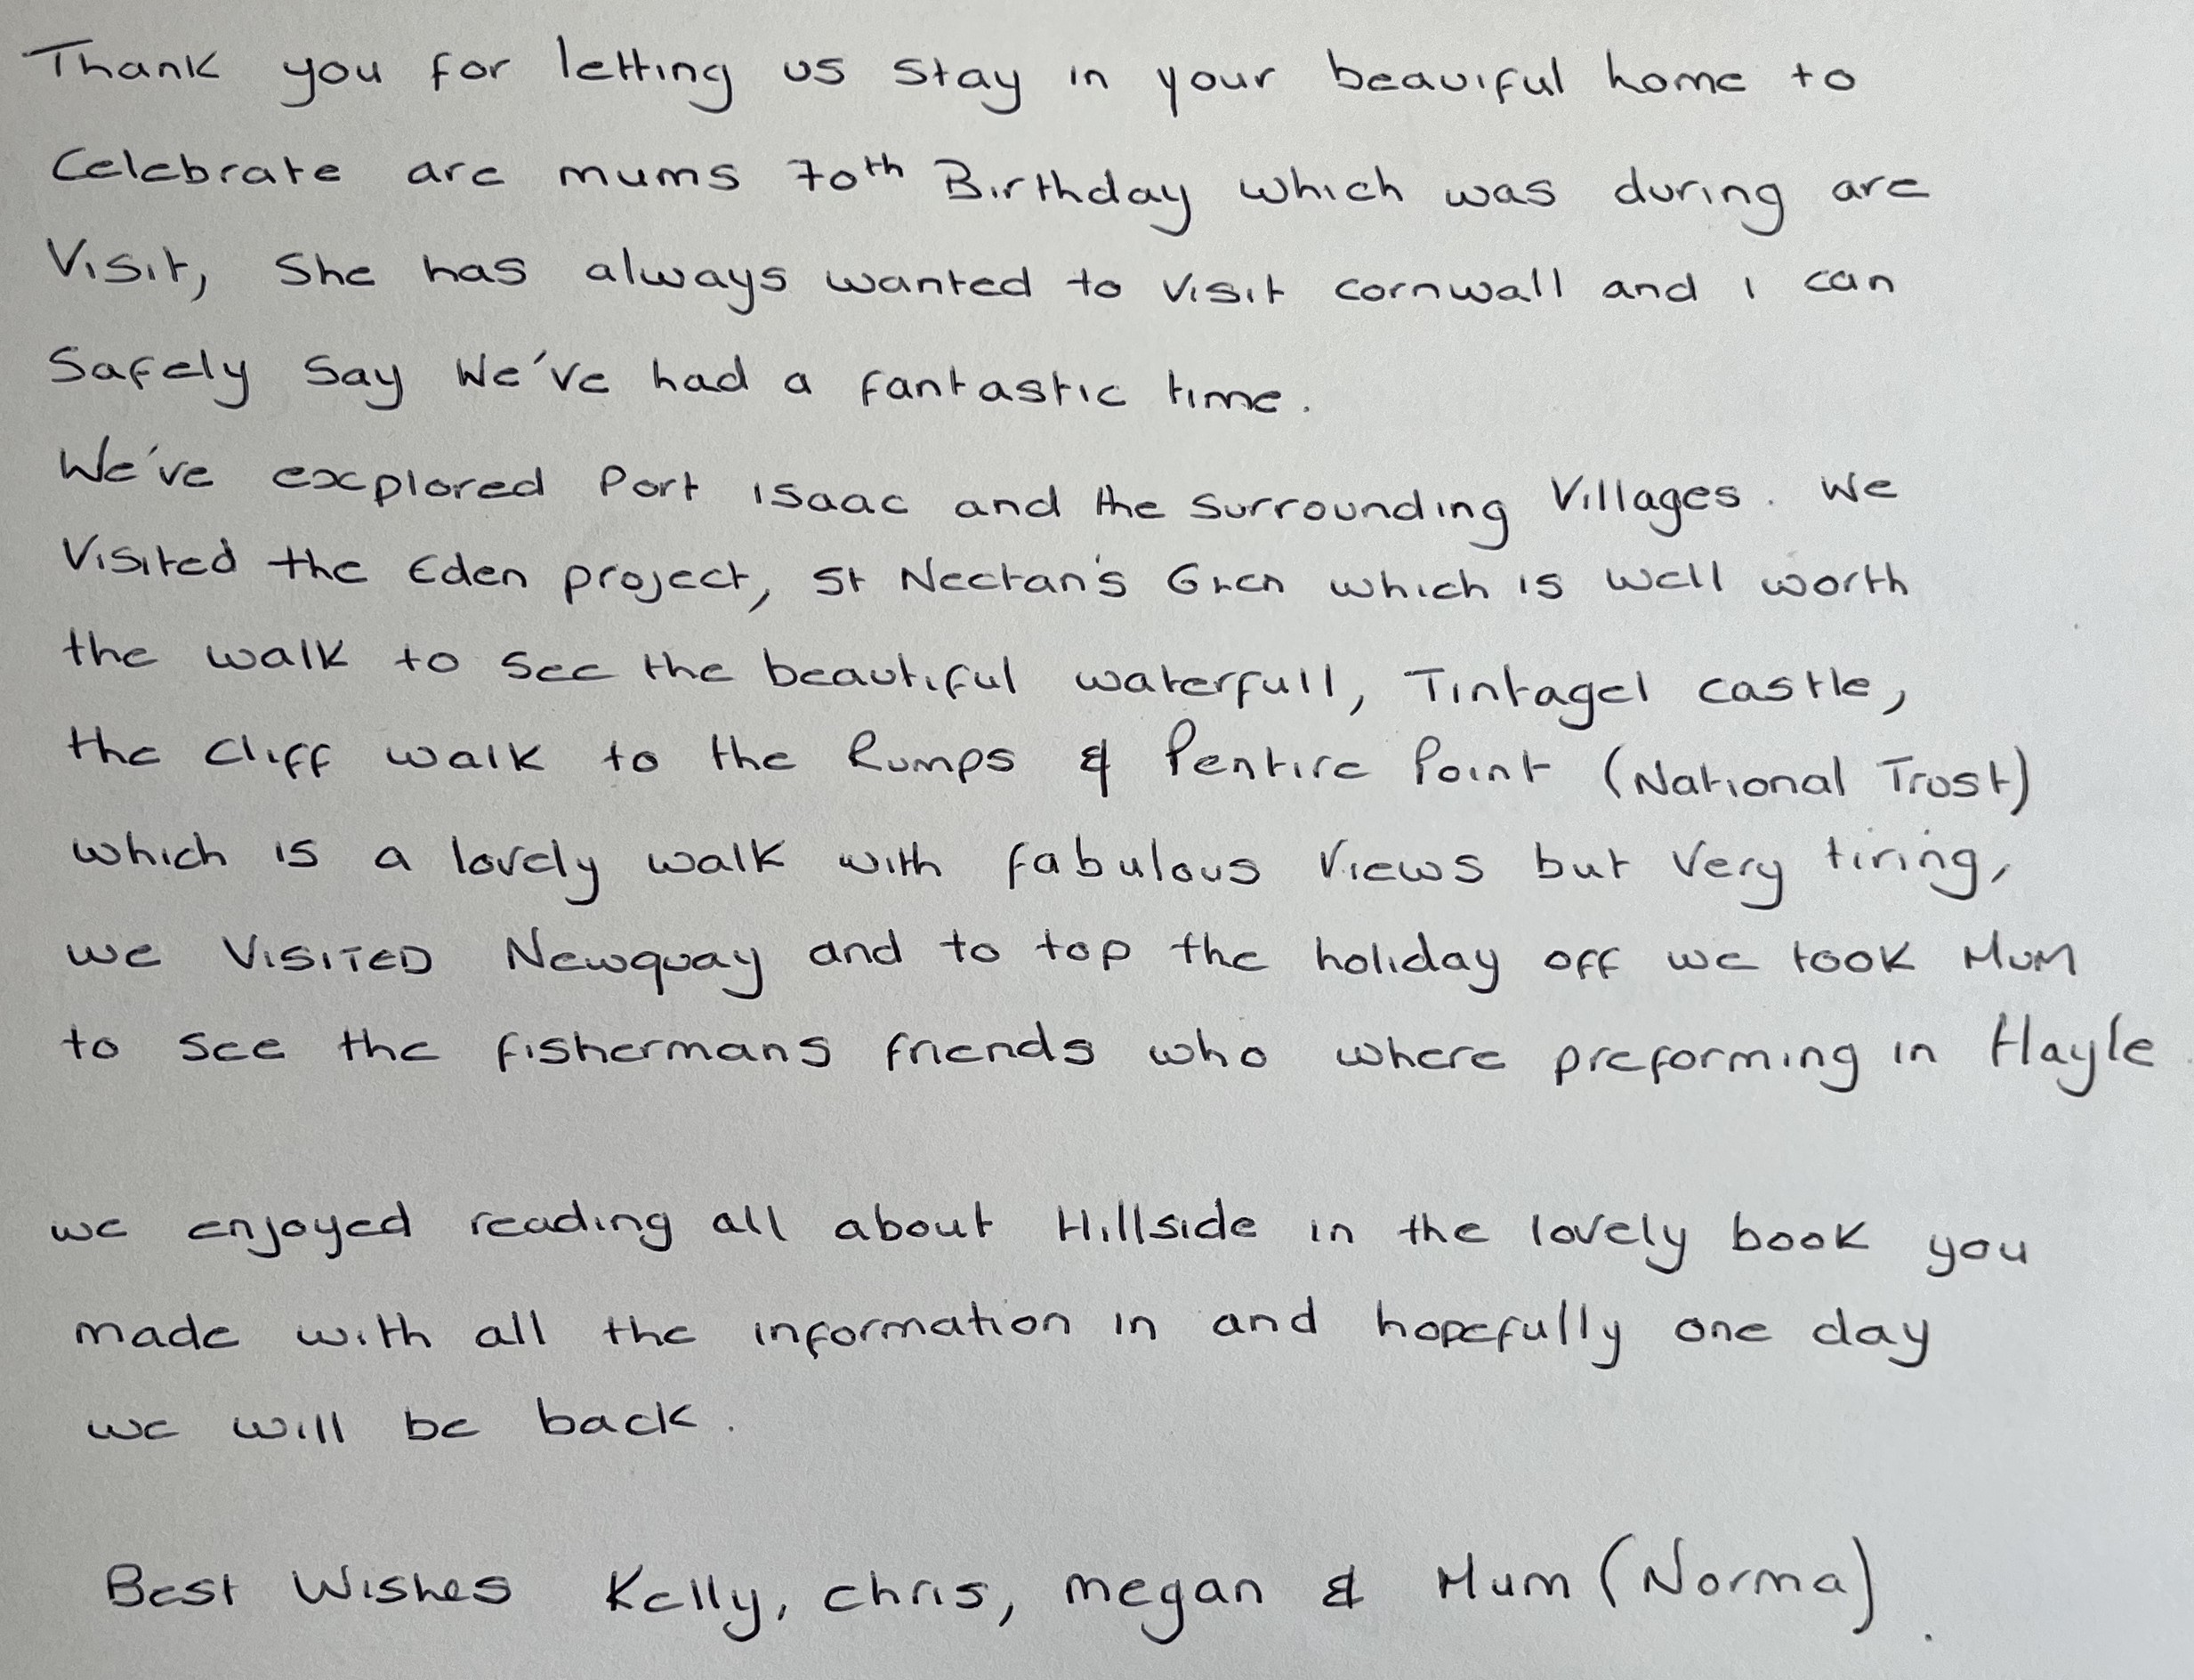 Thank you for letting us stay in your beauiful home to
Celebrate are mums 70th Birthday which was during are
Visit, She has always wanted to visit cornwall and i can
Safely Say We've had a fantastic time.
We've explored Port isaac and the surrounding Villages. We
Visited the Eden project, St Nectan's Glen which is well worth
the walk to see the beautiful waterfull, Tintagel castle,
the Cliff walk to the Rumps & Pentire Point (National Trust)
which is a lovely walk with fabulous Views but Very tiring,
we VISITED Newquay and to top the holiday off we took Mum
to see the fishermans friends who where preforming in Hayle
we enjoyed reading all about Hillside in the lovely book you
made with all the information in and hopefully one day
we will be back.
Best Wishes Kelly, Chris, Megan & Mum (Norma).